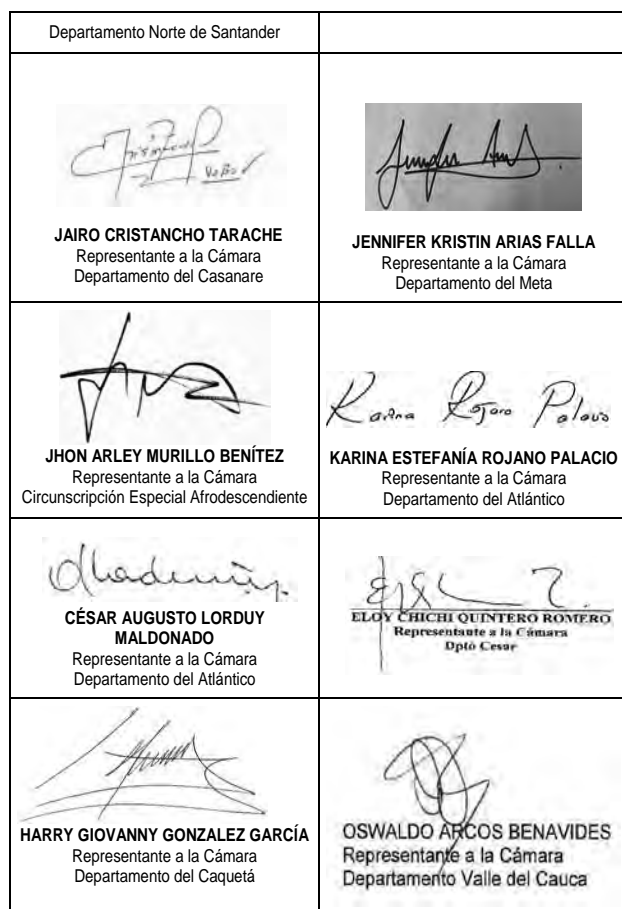 Departamento Norte de Santander
JAIRO CRISTANCHO TARACHE
Representante a la Cámara
Departamento del Casanare
JENNIFER KRISTIN ARIAS FALLA
Representante a la Cámara
Departamento del Meta
JHON ARLEY MURILLO BENÍTEZ
Representante a la Cámara
Circunscripción Especial Afrodescendiente
Karina Rojano Palacio
KARINA ESTEFANÍA ROJANO PALACIO
Representante a la Cámara
Departamento del Atlántico
CÉSAR AUGUSTO LORDUY
MALDONADO
Representante a la Cámara
Departamento del Atlántico
ELOY CHICHI QUINTERO ROMERO
Representante a la Cámara
Dptó Cesar
HARRY GIOVANNY GONZALEZ GARCÍA
Representante a la Cámara
Departamento del Caquetá
OSWALDO ARCOS BENAVIDES
Representante a la Cámara
Departamento Valle del Cauca